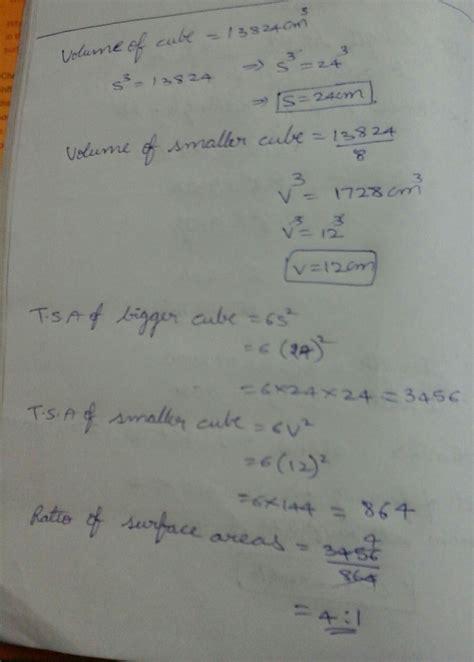 Volume of cube = 13824cm³
s³ = 13824 ⇒ s³ = 24³
⇒ s = 24cm
Volume of smaller cube = 13824/8
v³ = 1728 cm³
v³ = 12³
v = 12cm
T.S.A of bigger cube = 6s²
= 6(24)²
= 6×24×24 = 3456
T.S.A of smaller cube = 6v²
= 6(12)²
= 6×144 = 864
Ratio of surface areas = 3456/864 4
= 4:1